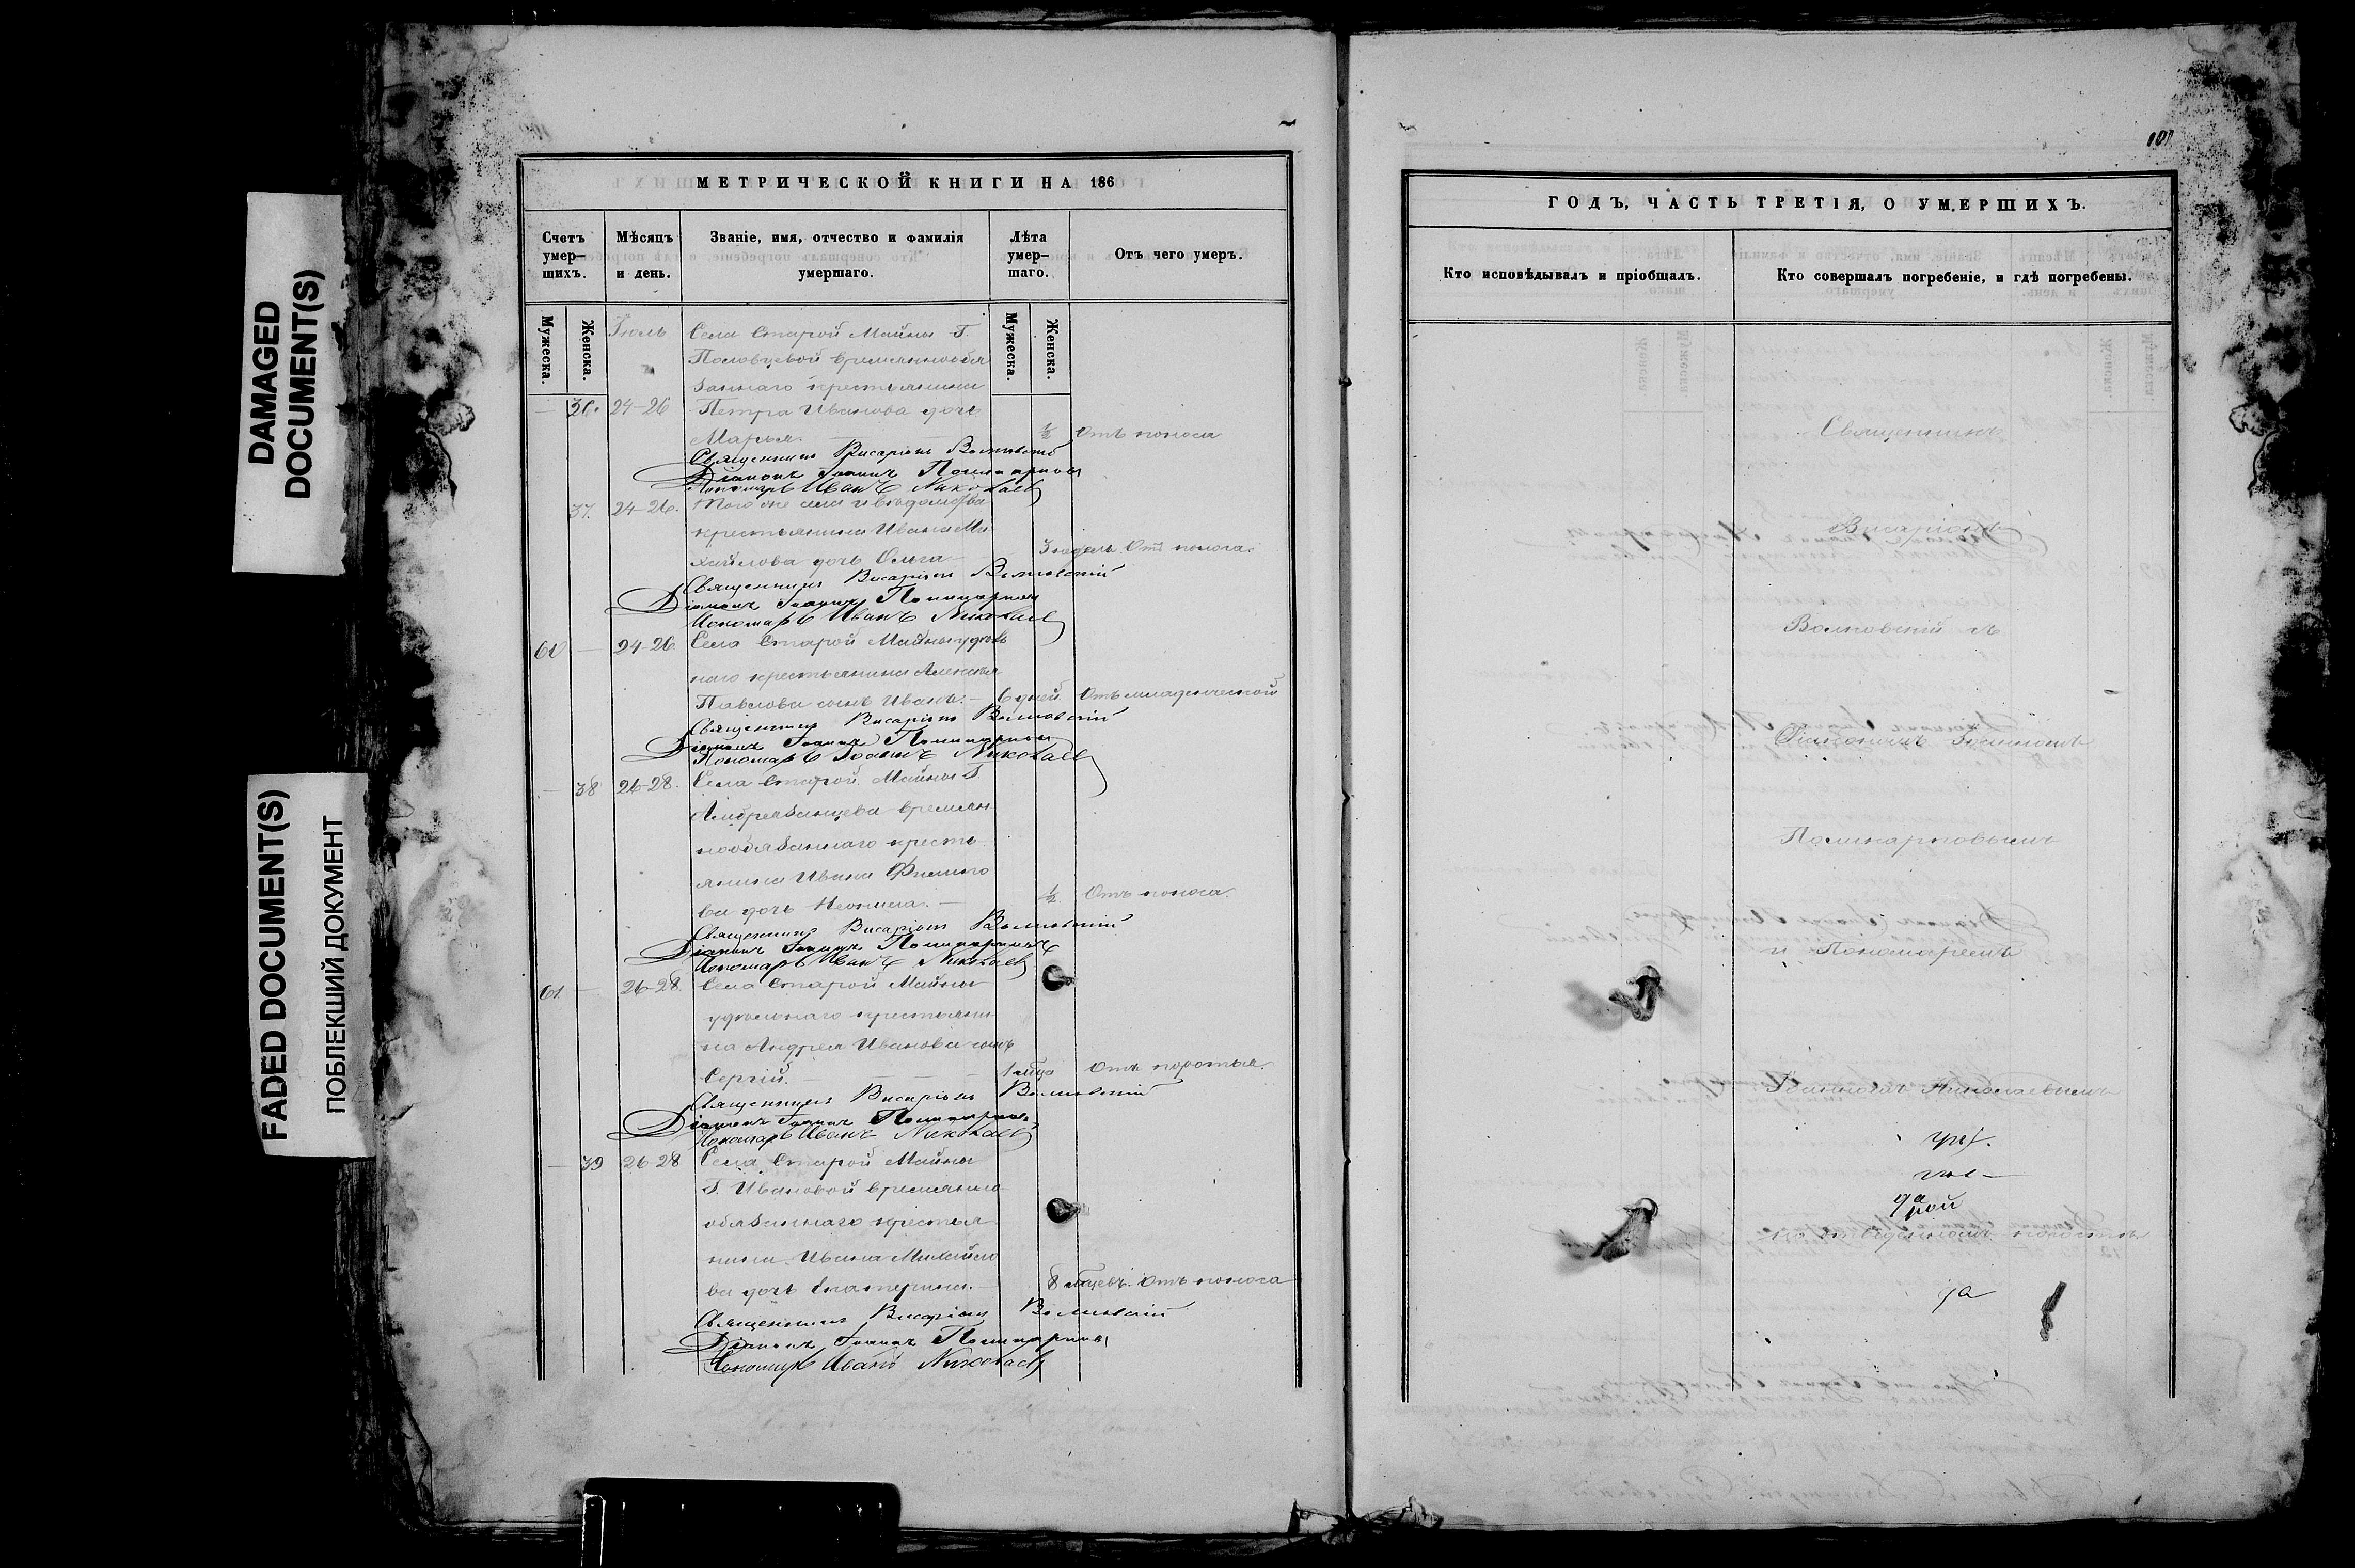 DAMAGED
DOCUMENT(S)
FADED DOCUMENT(S)
ПОБЛЕКШИЙ ДОКУМЕНТ
МЕТРИЧЕСКОЙ КНИГИ НА 186
Счетъ умер-шихъ.
Мѣсяцъ и день.
Званіе, имя, отчество и фамилія умершаго.
Лѣта умер-шаго.
Отъ чего умеръ.
Мужеска.
Женска.
Мужеска.
Женска.
Іюль Села Старой Майны Г.
Половцевой временнообя
заннаго крестьянина
— 36. 24-26 Петра Иванова дочь
Марья. ½ Отъ поноса
Священникъ Висаріонъ Волковскій
Діаконъ Іоаннъ Поликарповъ
Пономарь Иванъ Николаевъ
37. 24-26. Того же села и вѣдомства
крестьянина Ивана Ми
хайлова дочь Ольга 3 недель. Отъ поноса.
Священникъ Висаріонъ Волковскій
Діаконъ Іоаннъ Поликарповъ
Пономарь Иванъ Николаевъ
60 — 24-26 Села Старой Майны удѣль
наго крестьянина Алексѣя
Павлова сынъ Иванъ. — 6 дней Отъ младенческой
Священникъ Висаріонъ Волковскій
Діаконъ Іоаннъ Поликарповъ
Пономарь Іоаннъ Николаевъ
— 38 26-28. Села Старой Майны Г.
времен
нообязаннаго кресть
янина Ивана Филипо
ва дочь Неонила. — ½. Отъ поноса.
Священникъ Висаріонъ Волковскій
Діаконъ Іоаннъ Поликарповъ
Пономарь Иванъ Николаевъ
61 — 26-28. Села Старой Майны
удѣльнаго крестьяни
на Андрея Иванова сынъ
Сергій. — 1 мѣца Отъ
Священникъ Висаріонъ Волковскій
Діаконъ Іоаннъ Поликарповъ
Пономарь Иванъ Николаевъ
— 39 26-28 Села Старой Майны
Г. Ивановой временно
обязаннаго крестья
нина Ивана Михайло
ва дочь Екатерина. — 8 мѣцевъ. Отъ поноса
Священникъ Висаріонъ Волковскій
Діаконъ Іоаннъ Поликарповъ
Пономарь Иванъ Николаевъ
ГОДЪ, ЧАСТЬ ТРЕТІЯ, О УМЕРШИХЪ.
Кто исповѣдывалъ и пріобщалъ.
Кто совершалъ погребеніе, и гдѣ погребены.
Священникъ
Висаріонъ
Волковскій съ
Діакономъ Іоанномъ
Поликарповымъ
и Пономаремъ
Іоанномъ Николаевымъ